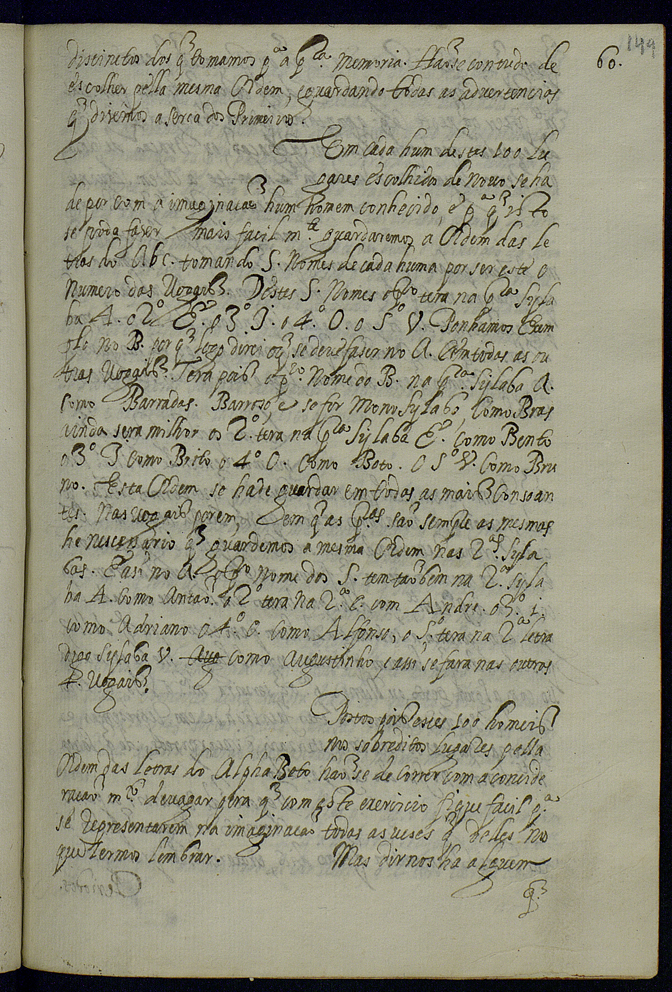 149
60.
distinctos dos q̃ tomamos pª a pʳª memoria. Hãse contudo de
escolher pella mesma Ordem, e guardando todas as advertencias
q̃ dixemos aserca dos Primeiros.
Em cada hum destes 100 lu
gares escolhidos de novo se ha
de por com a imaginacaõ hum homem conhecido, e pª q̃ isto
se possa fazer mais facil mᵗᵉ guardaremos a Ordem das le
tras do Abc. tomando 5. Nomes de cada huma por ser este o
Numero das Vogais. Destes 5. Nomes o pʳº tera na pʳª Syla
ba A. o 2º E. o 3º I. o 4º O. o 5º V. Ponhamos Exem
plo no B. por q̃ logo direi o q̃ se deve faser no A. Com todas as ou
tras Vogais. Tera pois o pʳº Nome do B. na pʳª Sylaba A.
como Barradas. Barroso e se for Monosylabo como Bras
ainda sera milhor o 2º tera na pʳª Sylaba E. como Bento
o 3º I como Brito o 4º O. como Boto. O 5º V. como Bru
no. Esta Ordem se hade guardar em todas as mais Consoan
tes. Nas vogais porem, em q̃ as pʳᵃˢ saõ sempre as mesmas
he nescessario q̃ guardemos a mesma Ordem nas 2ᵃˢ Syla
bas. E asi no A. o pʳº nome dos 5. tem taõbem na 2ª Syla
ba A. como Antaõ. o 2º tera na 2ª E. com Andre. o 3º i.
como Adriano o 4º O. como Alfonso, o 5º tera na 2ª letra
digo Sylaba V. como Augusthnho e assi se fara nas outras
4. Vogais.
Postos pois estes 100 homeis
nos sobreditos lugares pella
Ordem das letras do Alphabeto haõse de correr com a conside
racaõ mᵗº devagar pera q̃ com este exercicio fique facil pª
se representarem na imaginacaõ todas as veses q̃ delles no
quisermos lembrar. Mas dirnos ha alguem
q̃